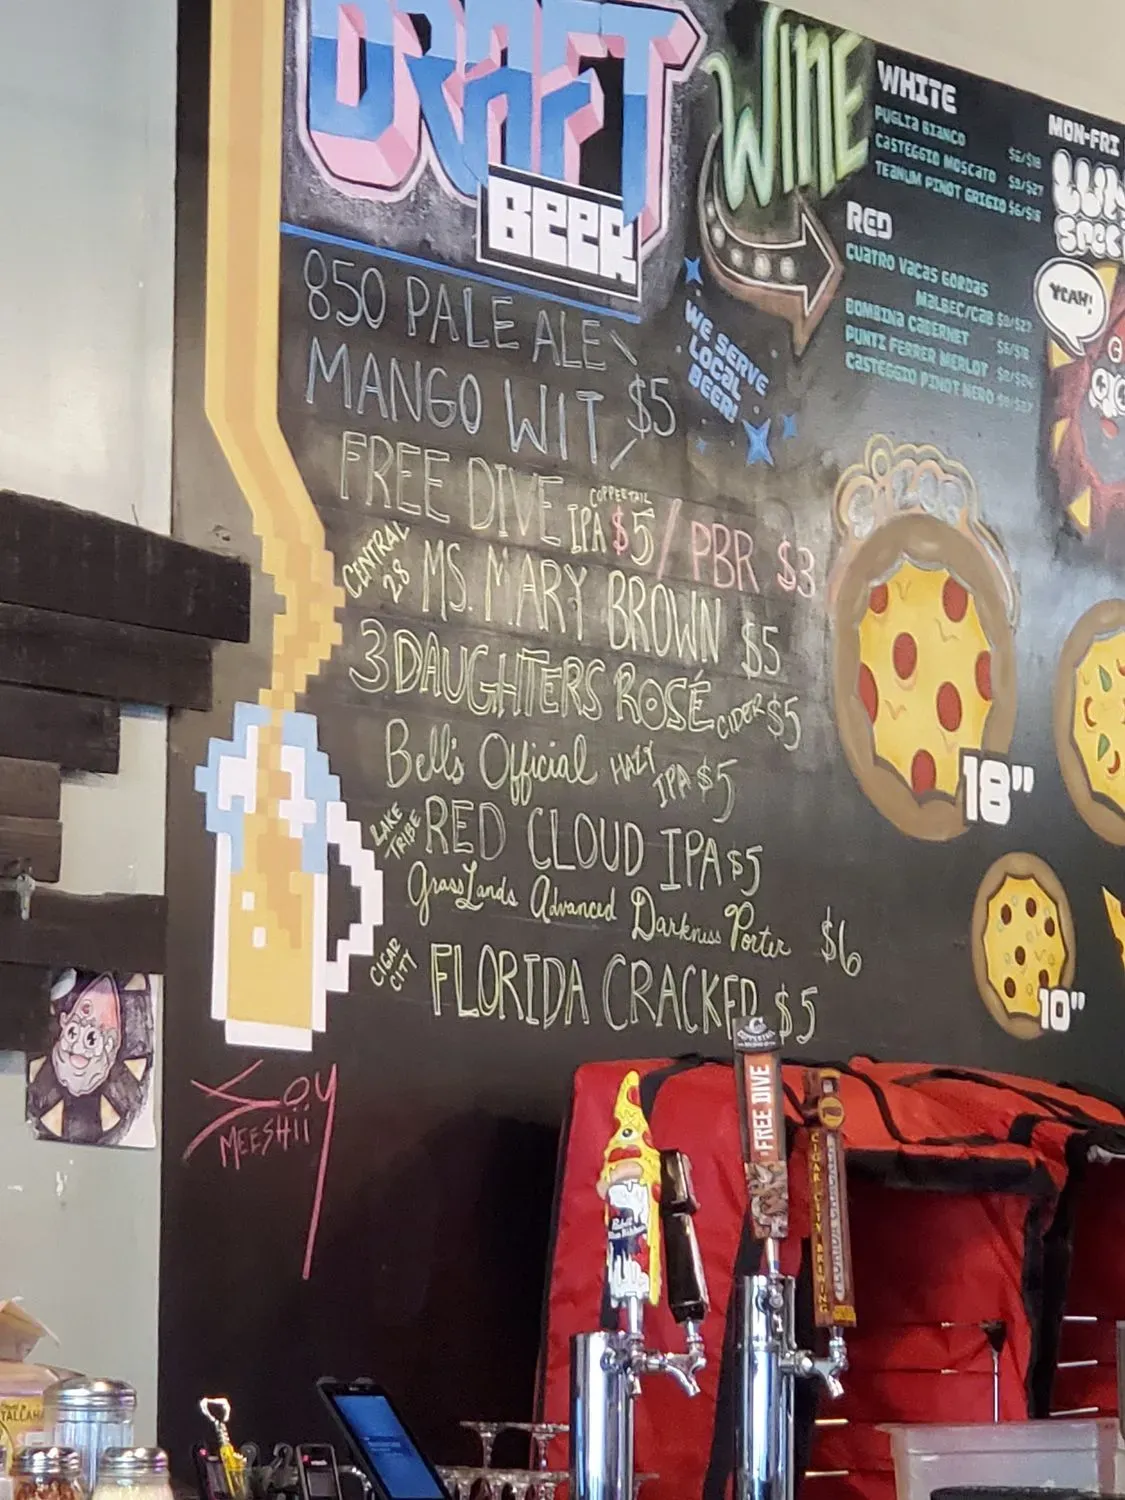 DRAFT
BEER
850 PALE ALE
MANGO WIT $5
FREE DIVE IPA COPPERTAIL $5 / PBR $3
CENTRAL 28 MS. MARY BROWN $5
3 DAUGHTERS ROSÉ CIDER $5
Bell's Official HAZY IPA $5
LAKE TRIBE RED CLOUD IPA $5
GrassLands Advanced Darkness Porter $6
CIGAR CITY FLORIDA CRACKER $5
MEESHII
WINE
WE SERVE
LOCAL
BEER!
WHITE
PUGLIA BIANCO $6/$18
CASTEGGIO MOSCATO $9/$27
TEANUM PINOT GRIGIO $6/$18
RED
CUATRO VACAS GORDAS
MALBEC/CAB $9/$27
BOMBINA CABERNET $6/$18
PUNTI FERRER MERLOT
CASTEGGIO PINOT NERO $9/$27
MON-FRI
YEAH!
18"
10"
FREE DIVE
CIGAR CITY BREWING
TALLAHA